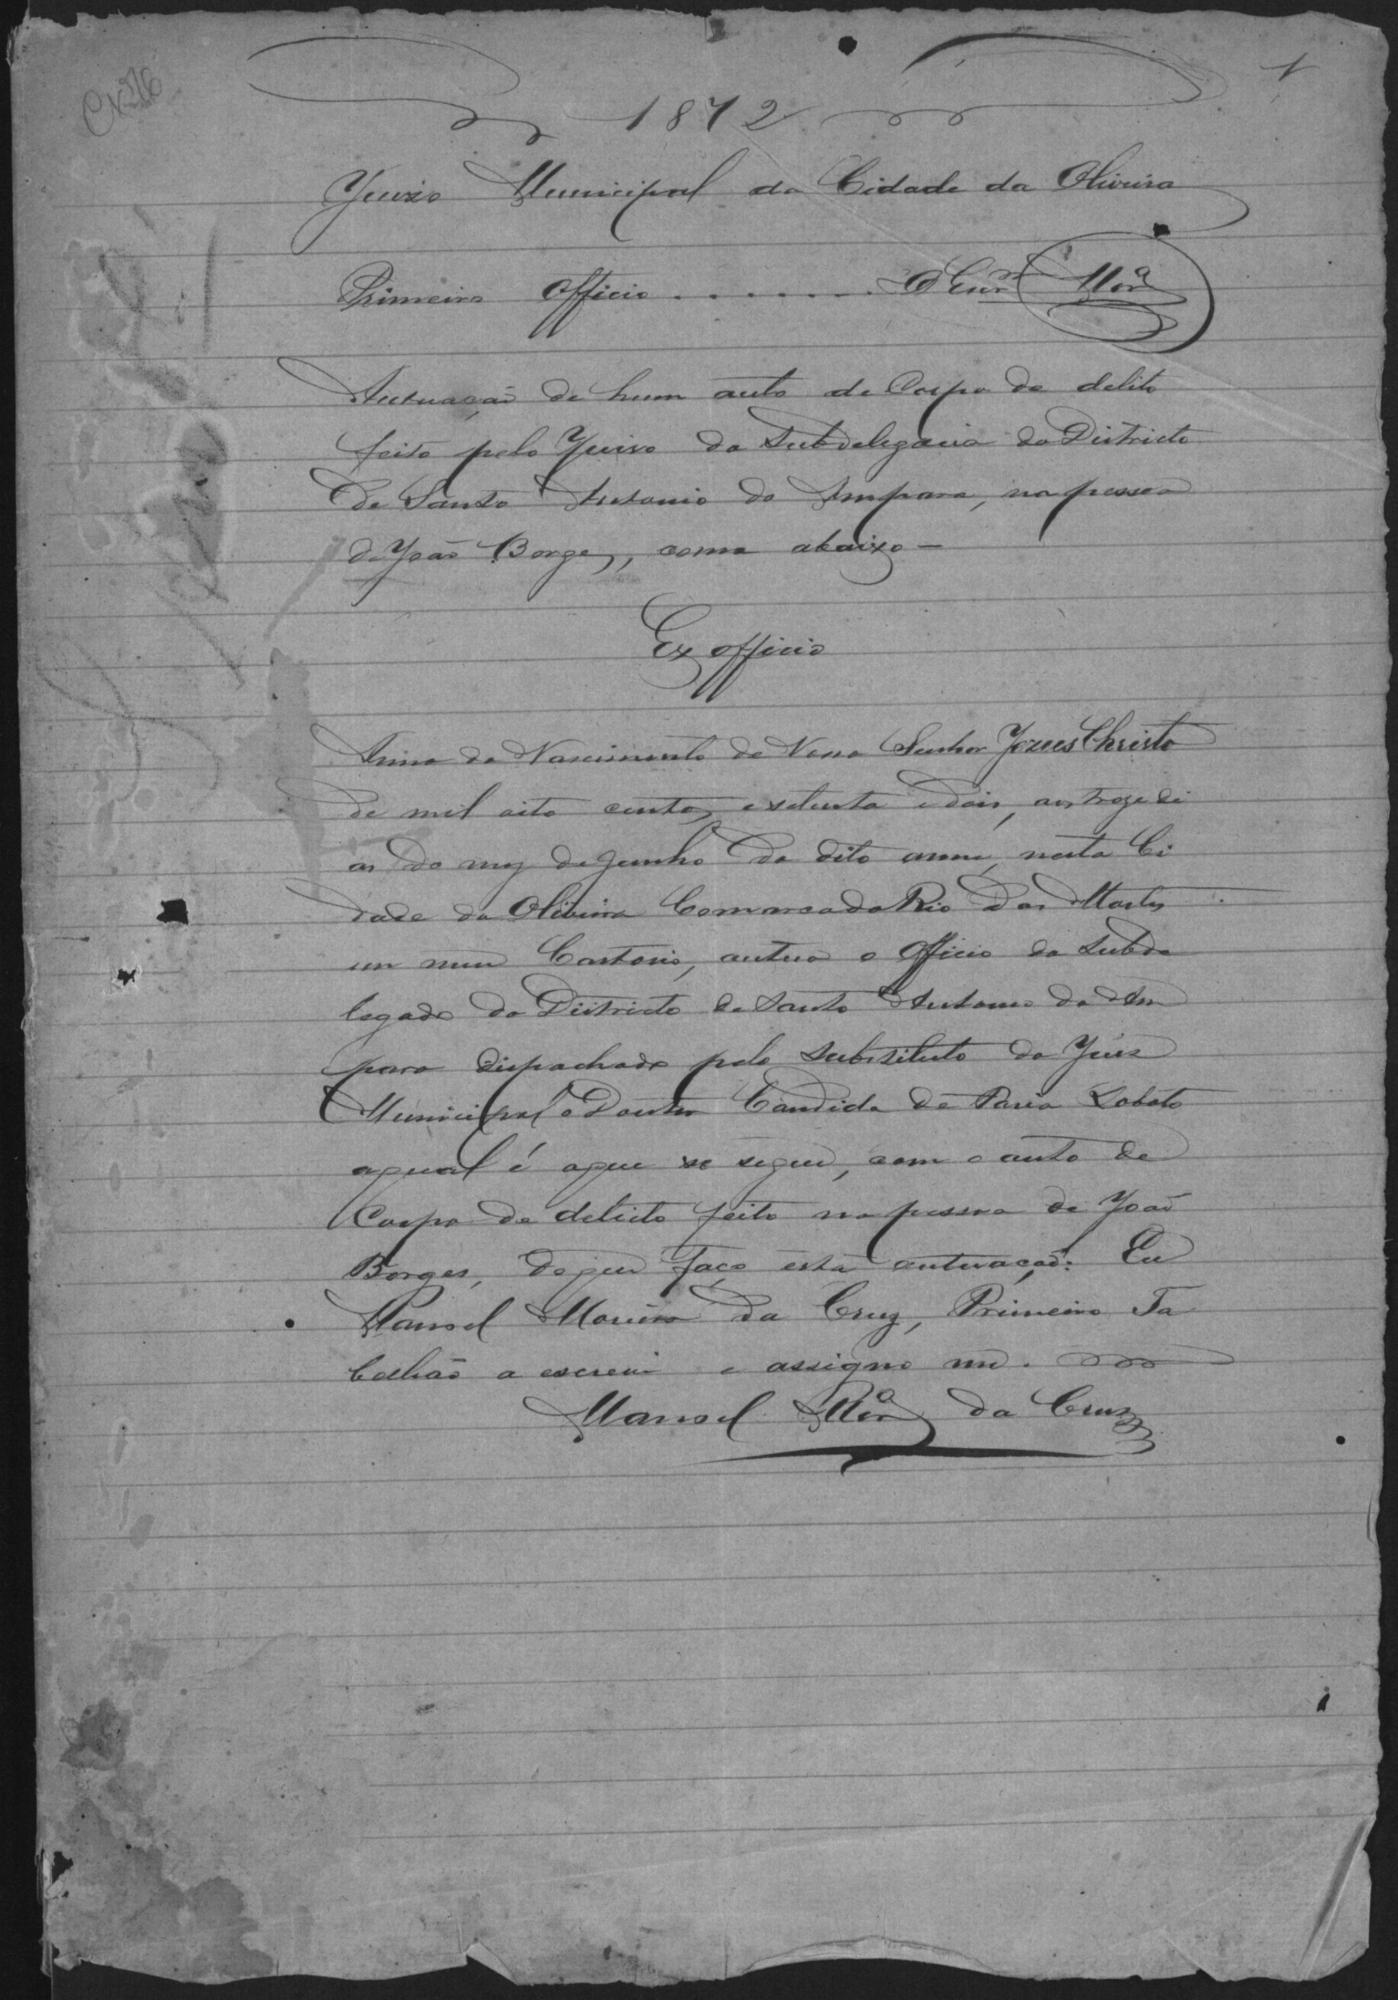 Cx 26
1
1872
Juizo Municipal da Cidade da Oliveira
Primeiro Officio . . . . . . . O Escr.m Mor.a
Autuação de hum auto de Corpo de delito
feito pelo Juizo da Subdelegacia do Districto
de Santo Antonio do Amparo, na pessoa
de João Borges, como abaixo —
Ex officio
Anno do Nascimento de Nosso Senhor Jezus Christo
de mil oito centos, e setenta e dois, aos treze di
as do mez de Junho do dito anno, nesta Ci
dade da Oliveira Comarca do Rio das Mortes
em meu Cartorio, autuo o Officio do Subde
legado do Districto de Santo Antonio do Am
paro dispachado pelo Substituto do Juiz
Municipal o Doutor Candido de Faria Lobato
aqual é aque se segue, com o auto de
Corpo de delicto feito na pessoa de João
Borges, doque faço esta autuação: Eu
Manoel Moreira da Cruz, Primeiro Ta
bellião a escrevi e assigno me.
Manoel Mor.a da Cruz